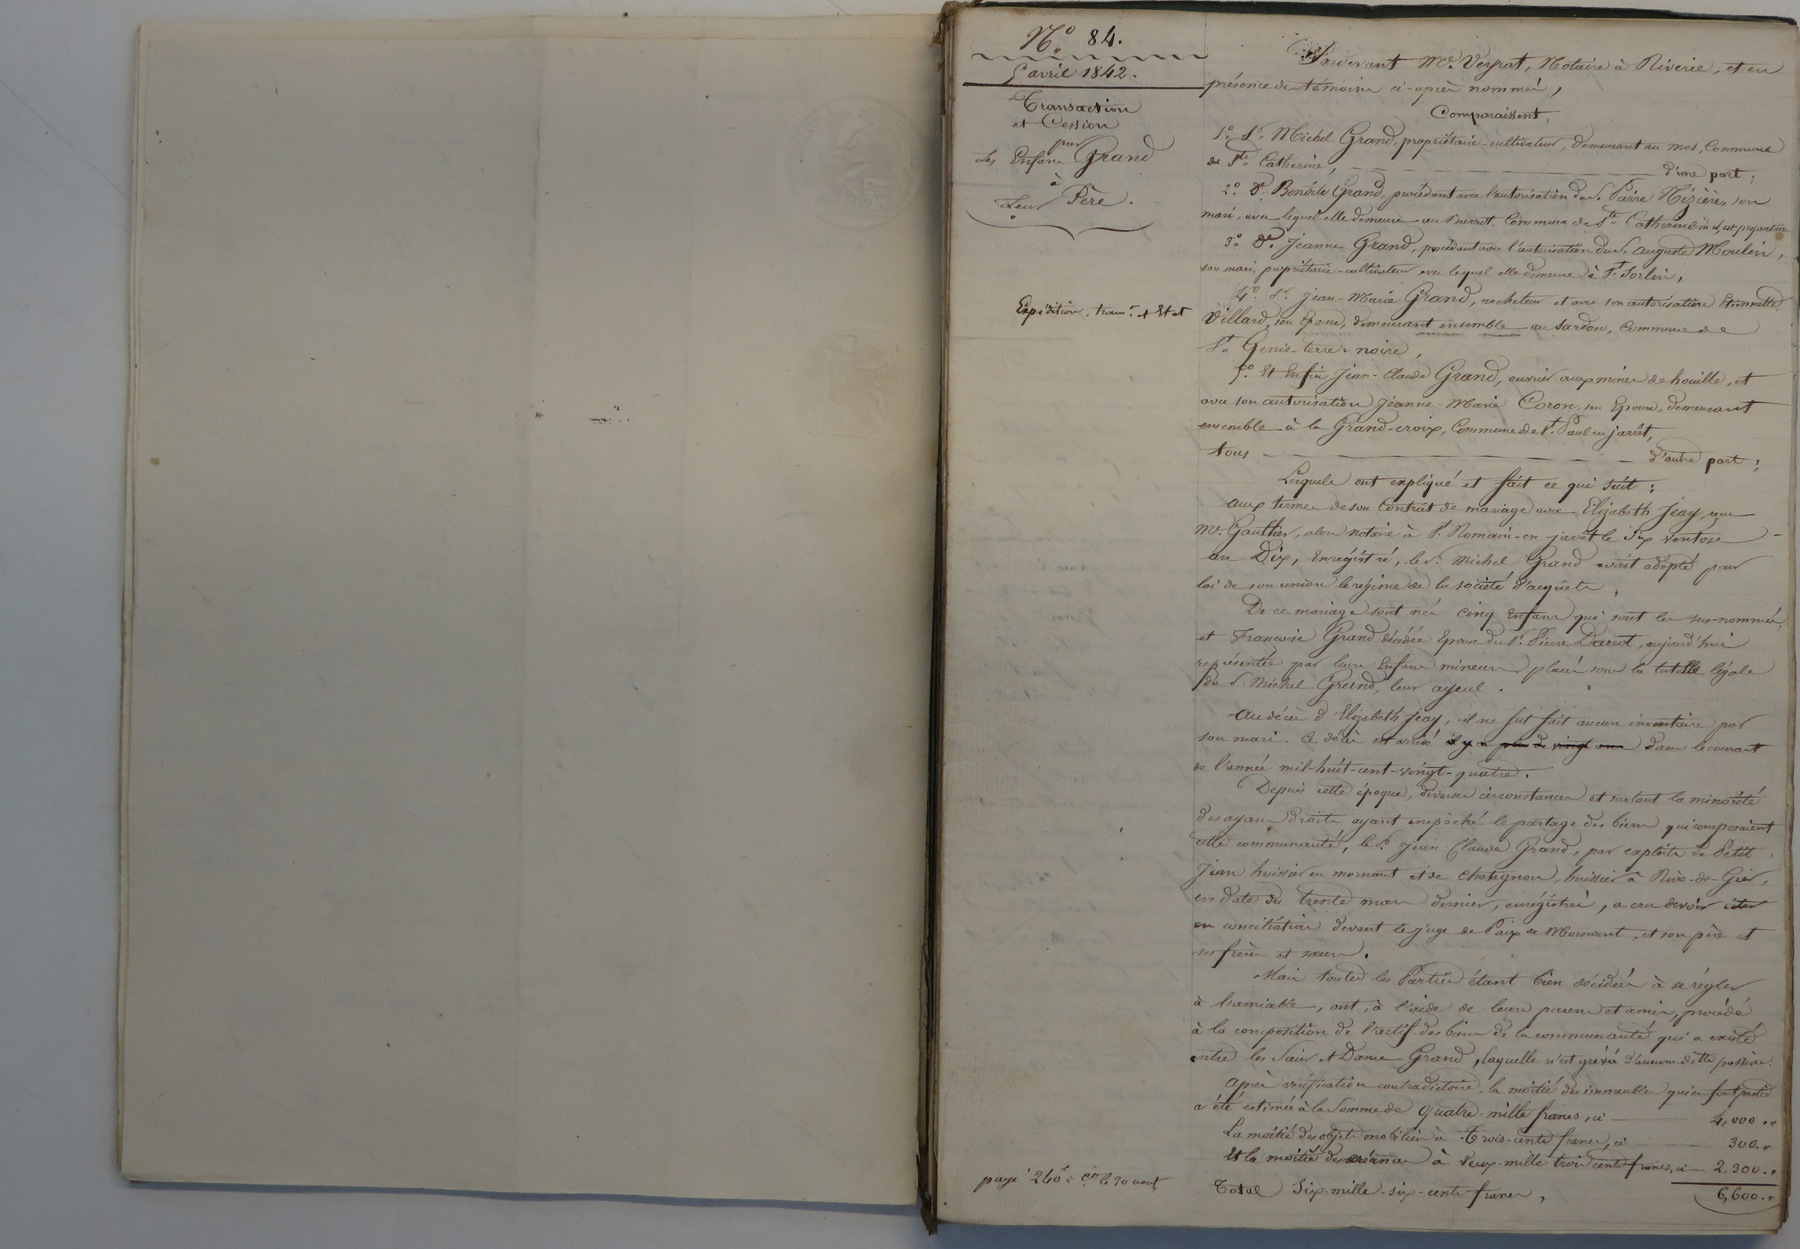 N° 84.
5 avril 1842.
Transaction
et Cession
par
Les Enfans Grand
à
Leur Père.
Expédition, trans.on et Etat
payé 240 f. le 30 aout
Pardevant Me. Veyrat, Notaire à Riverie, et en
présence des témoins ci-après nommés,
Comparaissent,
1° Sr. Michel Grand, propriétaire-cultivateur, demeurant au mas, Commune
de Ste. Catherine, d'une part;
2° De. Benoîte Grand, procédant avec l'autorisation du Sr. Pierre Mizière, son
mari, avec lequel elle demeure au Burret, Commune de Ste. Catherine
3° De. Jeanne Grand, procédant avec l'autorisation du Sr. Auguste Moulin,
son mari, propriétaire-cultivateur avec lequel elle demeure à St. Sorlin,
4° Sr. Jean-Marie Grand, crocheteur et avec son autorisation Etiennette
Villard, son Epouse, demeurant ensemble au Sardon, Commune de
St. Genis-terre-noire,
5° Et Enfin Jean-Claude Grand, ouvrier aux mines de houille, et
avec son autorisation Jeanne-Marie Coron, son Epouse, demeurant
ensemble à la Grand-croix, Commune de St. Paul en jarrêt,
tous d'autre part;
Lesquels ont expliqué et fait ce qui suit:
aux termes de son Contrat de mariage avec Elizabeth Jeay, reçu
Me. Gauthier, alors notaire à St. Romain-en-jarrêt le Six ventose
an Dix, Enrégistré, le Sr. Michel Grand avait adopté pour
loi de son union le régime de la société d'acquêts,
De ce mariage sont nés Cinq Enfans qui sont les sus-nommés,
et Françoise Grand décédée Epouse du Sr. Pierre Darot, aujourd'hui
représentée par leurs Enfans mineurs placés sous la tutelle légale
du Sr. Michel Grand, leur ayeul.
Au décès d'Elizabeth Jeay, il ne fut fait aucun inventaire par
son mari. Ce décès est arrivé il y a plus de vingt ans dans le courant
de l'année mil-huit-cent-vingt-quatre.
Depuis cette époque, diverses circonstances et surtout la minorité
des ayans droits ayant empêché le partage des biens qui composaient
cette communauté, le Sr. Jean-Claude Grand, par exploits de Petit
Jean huissier en mornant et de Chataignon, huissier à Rive-de-Gier,
en date du trente mars dernier, enrégistrés, a cru devoir citer
en conciliation devant le juge de Paix de Mornant, et son père et
ses frères et sœurs.
Mais toutes les Parties étant bien décidées à se régler
à l'amiable, ont, à l'aide de leurs parens et amis, procédé
à la composition de l'actif des biens de la communauté qui a existé
entre les Sieur et Dame Grand, laquelle n'est grévée d'aucune dette passive.
Après vérification contradictoire, la moitié des immeubles qui en font partie
a été estimée à la Somme de quatre-mille francs, ci 4,000 "
La moitié des objets mobiliers à Trois-cents francs, ci 300 "
Et la moitié des créances à deux-mille trois cents francs, ci 2,300 "
Total Six-mille-six-cents francs, 6,600 "